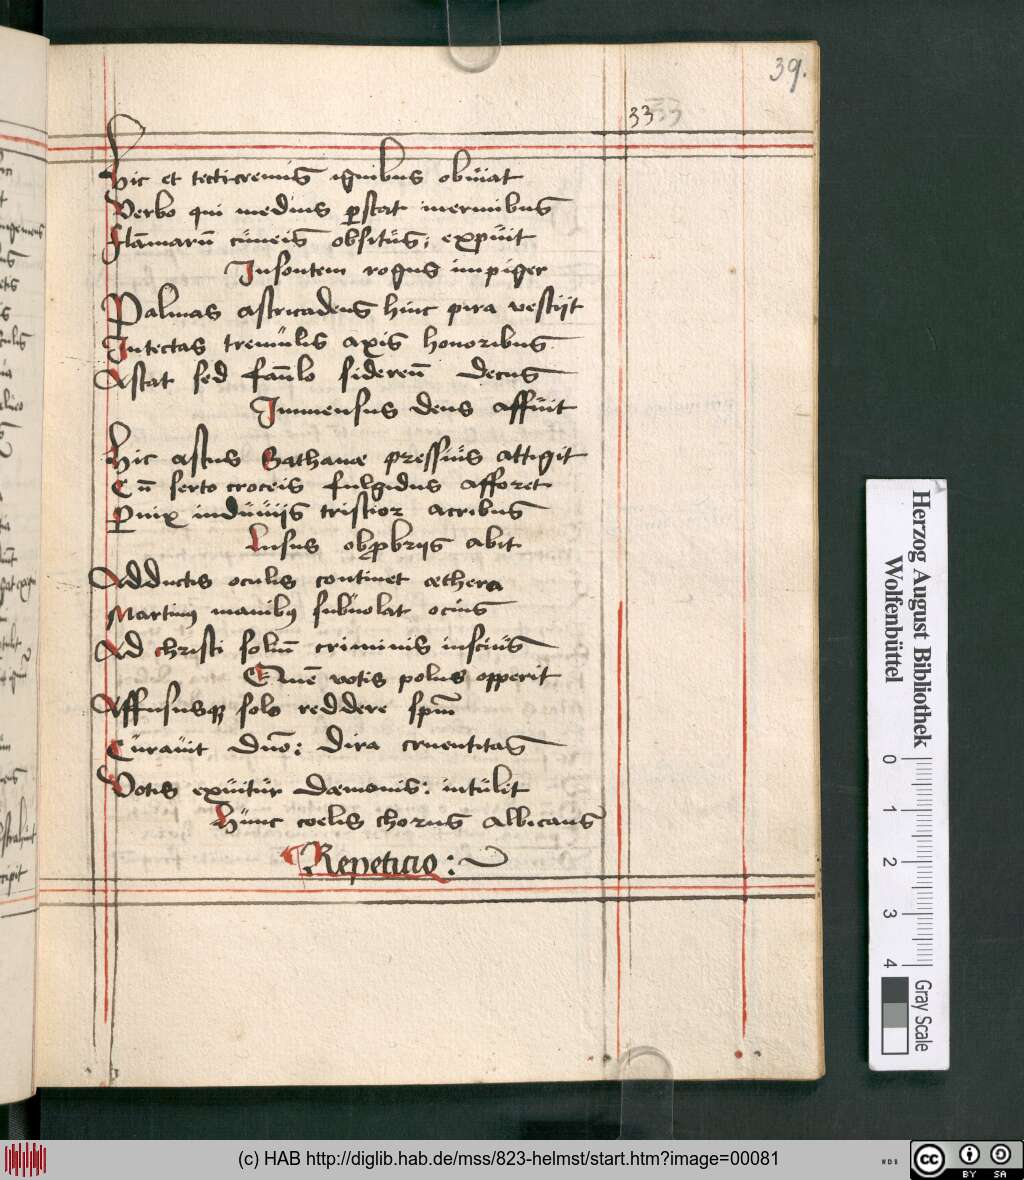 39.
33
Hic et tecticremis ignibus obuiat
Verbo qui medius ꝑstat inermibus
Flāmarū cuneis obsitus: expuit
Insontem rogus impiger
Palmas astricadens hinc pira vestiit
Intectas tremulis axis honoribus
Astat sed fāulo sidereū decus
Immensus deus affuit
Hic astus Sathanæ pressius attigit
Cū serto croceis fulgidus afforet
Pnix induuiis tristior acribus
Lusus obꝓbriis abit
Adductis oculis continet æthera
Martinꝰ manibꝰ subuolat ocius
Ad christi soliū criminis inscius
Quē votis polus opperit
Affususqꝫ solo reddere spm̄
Curauit duō: dira cruentitas
Votis exuitur dæmonis: intulit
Hunc coelis chorus albicans
Repeticio:
Herzog August Bibliothek
Wolfenbüttel
0 1 2 3 4
Gray Scale
(c) HAB http://diglib.hab.de/mss/823-helmst/start.htm?image=00081
cc BY SA